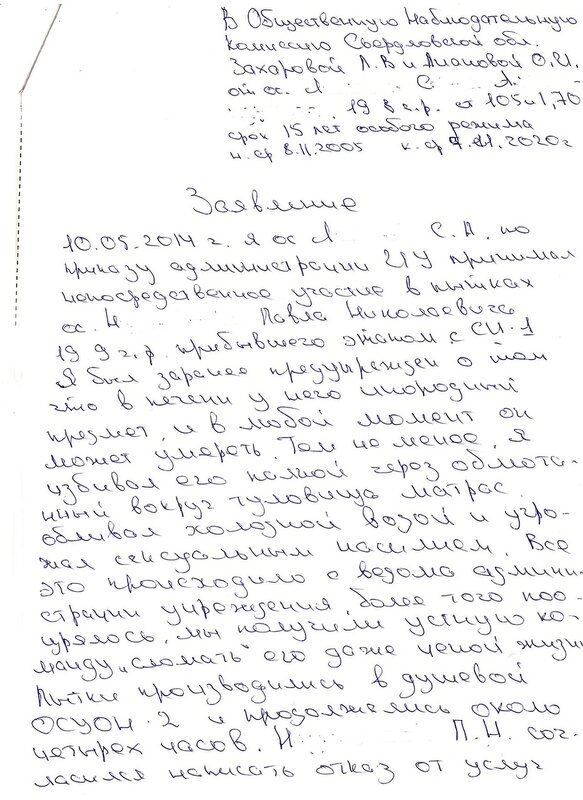 В Общественную Наблюдательную
комиссию Свердловской обл.
Захаровой Л.В и Диановой О.И.
от ос. Л С А.
19 8 г.р. ст 105ч1,70
срок 15 лет особого режима
н.ср 8.11.2005 к.ср 2020г
Заявление
10.05.2014 г. я ос Л С.А. по
приказу администрации ИУ принимал
непосредственное участие в пытках
ос. Н Павла Николаевича
19 9 г.р. прибывшего этапом с СИ-1
Я был заранее предупрежден о том
что в печени у него инородный
предмет, и в любой момент он
может умереть. Тем не менее, я
избивал его палкой через обмота-
нный вокруг туловища матрас.
обливал холодной водой и угро-
жал сексуальным насилием. Все
это происходило с ведома админи-
страции учреждения, более того поо-
щрялось, мы получили устную ко-
манду „сломать" его даже ценой жизни
Пытки производились в душевой
ОСУОН-2 и продолжались около
четырех часов. Н П.Н. сог-
ласился написать отказ от услуг